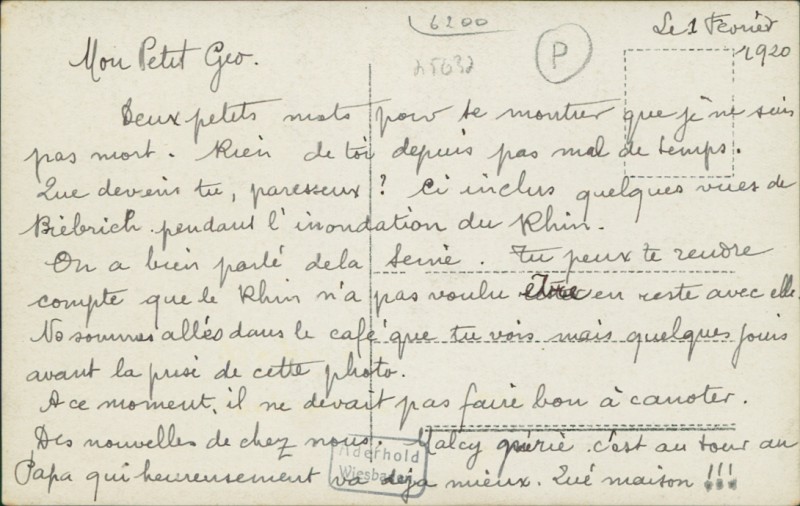 6200
Le 1 Février
1920
25632
P
Mon Petit Geo.
Deux petits mots pour te montrer que je ne suis
pas mort. Rien de toi depuis pas mal de temps.
Que deviens tu, paresseux ? Ci inclus quelques vues de
Biebrich pendant l'inondation du Rhin.
On a bien parlé dela Seine. Tu peux te rendre
compte que le Rhin n'a pas voulu être en reste avec elle.
Ns sommes allés dans le café que tu vois mais quelques jours
avant la prise de cette photo.
A ce moment, il ne devait pas faire bon à canoter.
Des nouvelles de chez nous. guérie c'est au tour au
Papa qui heureusement va deja mieux. Qué maison !!!
Aderhold
Wiesbaden